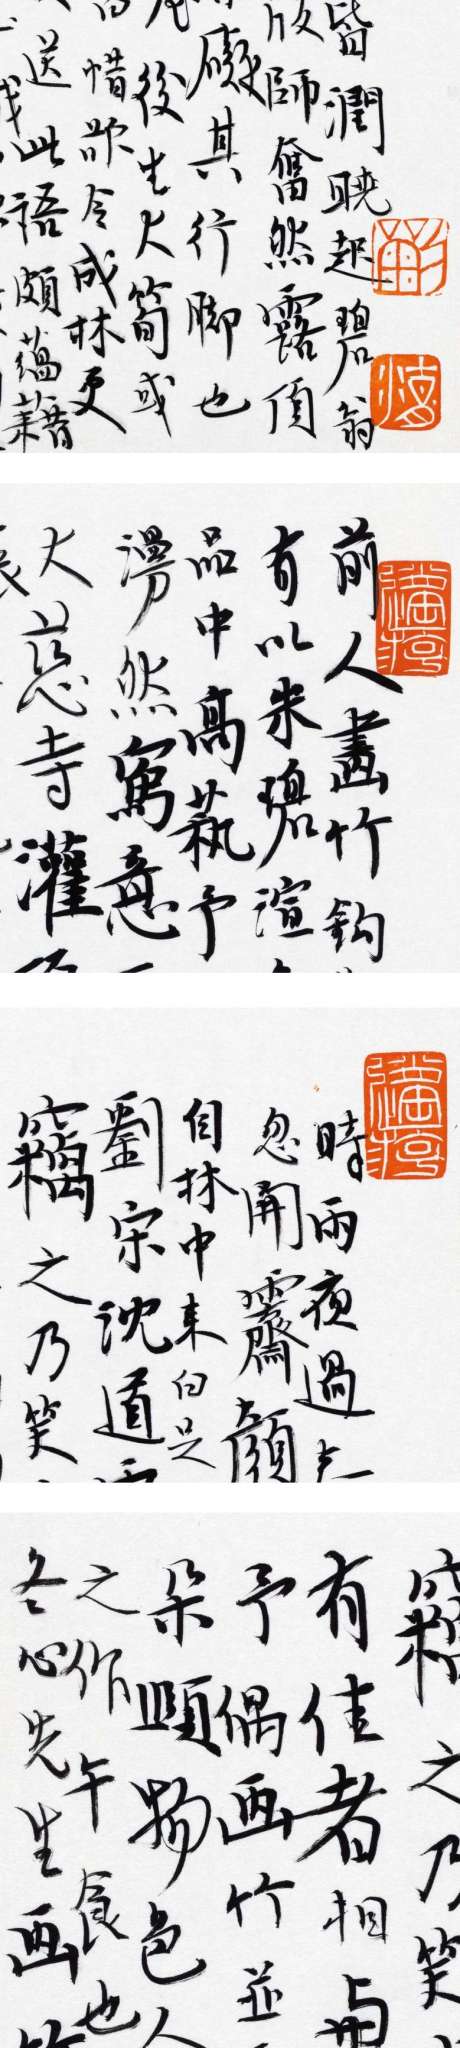 皆潤曉起碧翁
師奮然露頂
癡其行腳也
後生大筍或
惜歌令成林更
送此語頗蘊藉
前人畫竹鈎
有以朱碧渲
品中高執予
漫然寫意
大慈寺灌
時雨夜過
忽開靈顏
自林中來白足
劉宋沈道
竊之乃笑
竊之乃笑
有佳者相與
予偶画竹並
朵頤物色人
之作午食也
冬心先生画